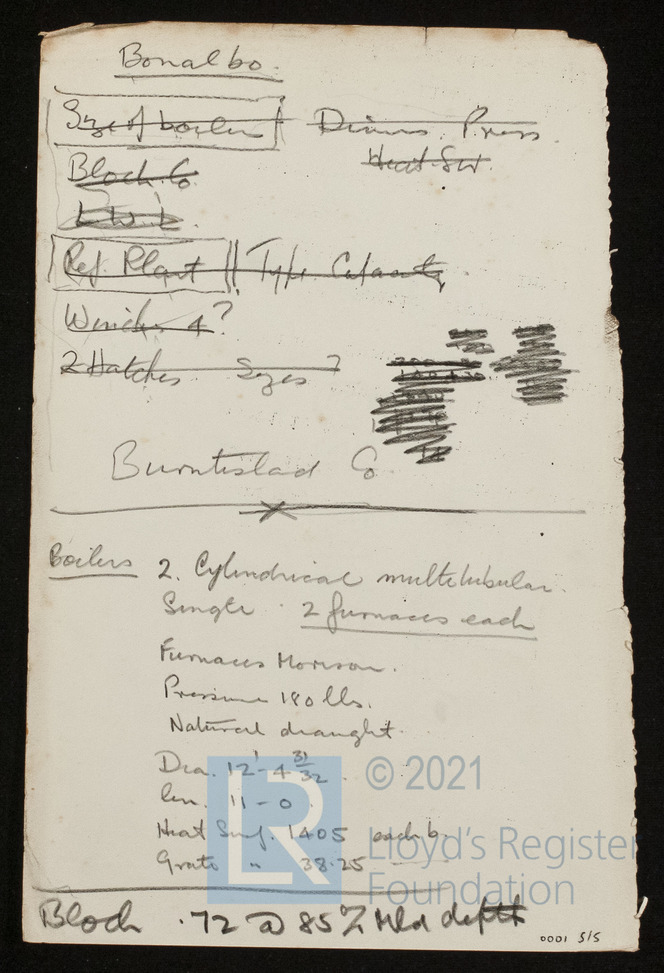 Bonalbo.
Size of boilers Dimns. Press
Heat Sur.
Block Co
L.W.L.
Ref. Plant Type Capacity
Winches 4?
2 Hatches Sizes?
Burntislad Co
Boilers 2. Cylindrical multitubular.
Single . 2 furnaces each
Furnaces Morison.
Pressure 180 lbs.
Natural draught.
Dia. 12'-4 31/32
len. 11-0.
Heat Surf. 1405 each b.
Grate " 38.25
© 2021
LR
Lloyd's Register
Foundation
Block .72 @ 85% Mld depth
0001 5/5